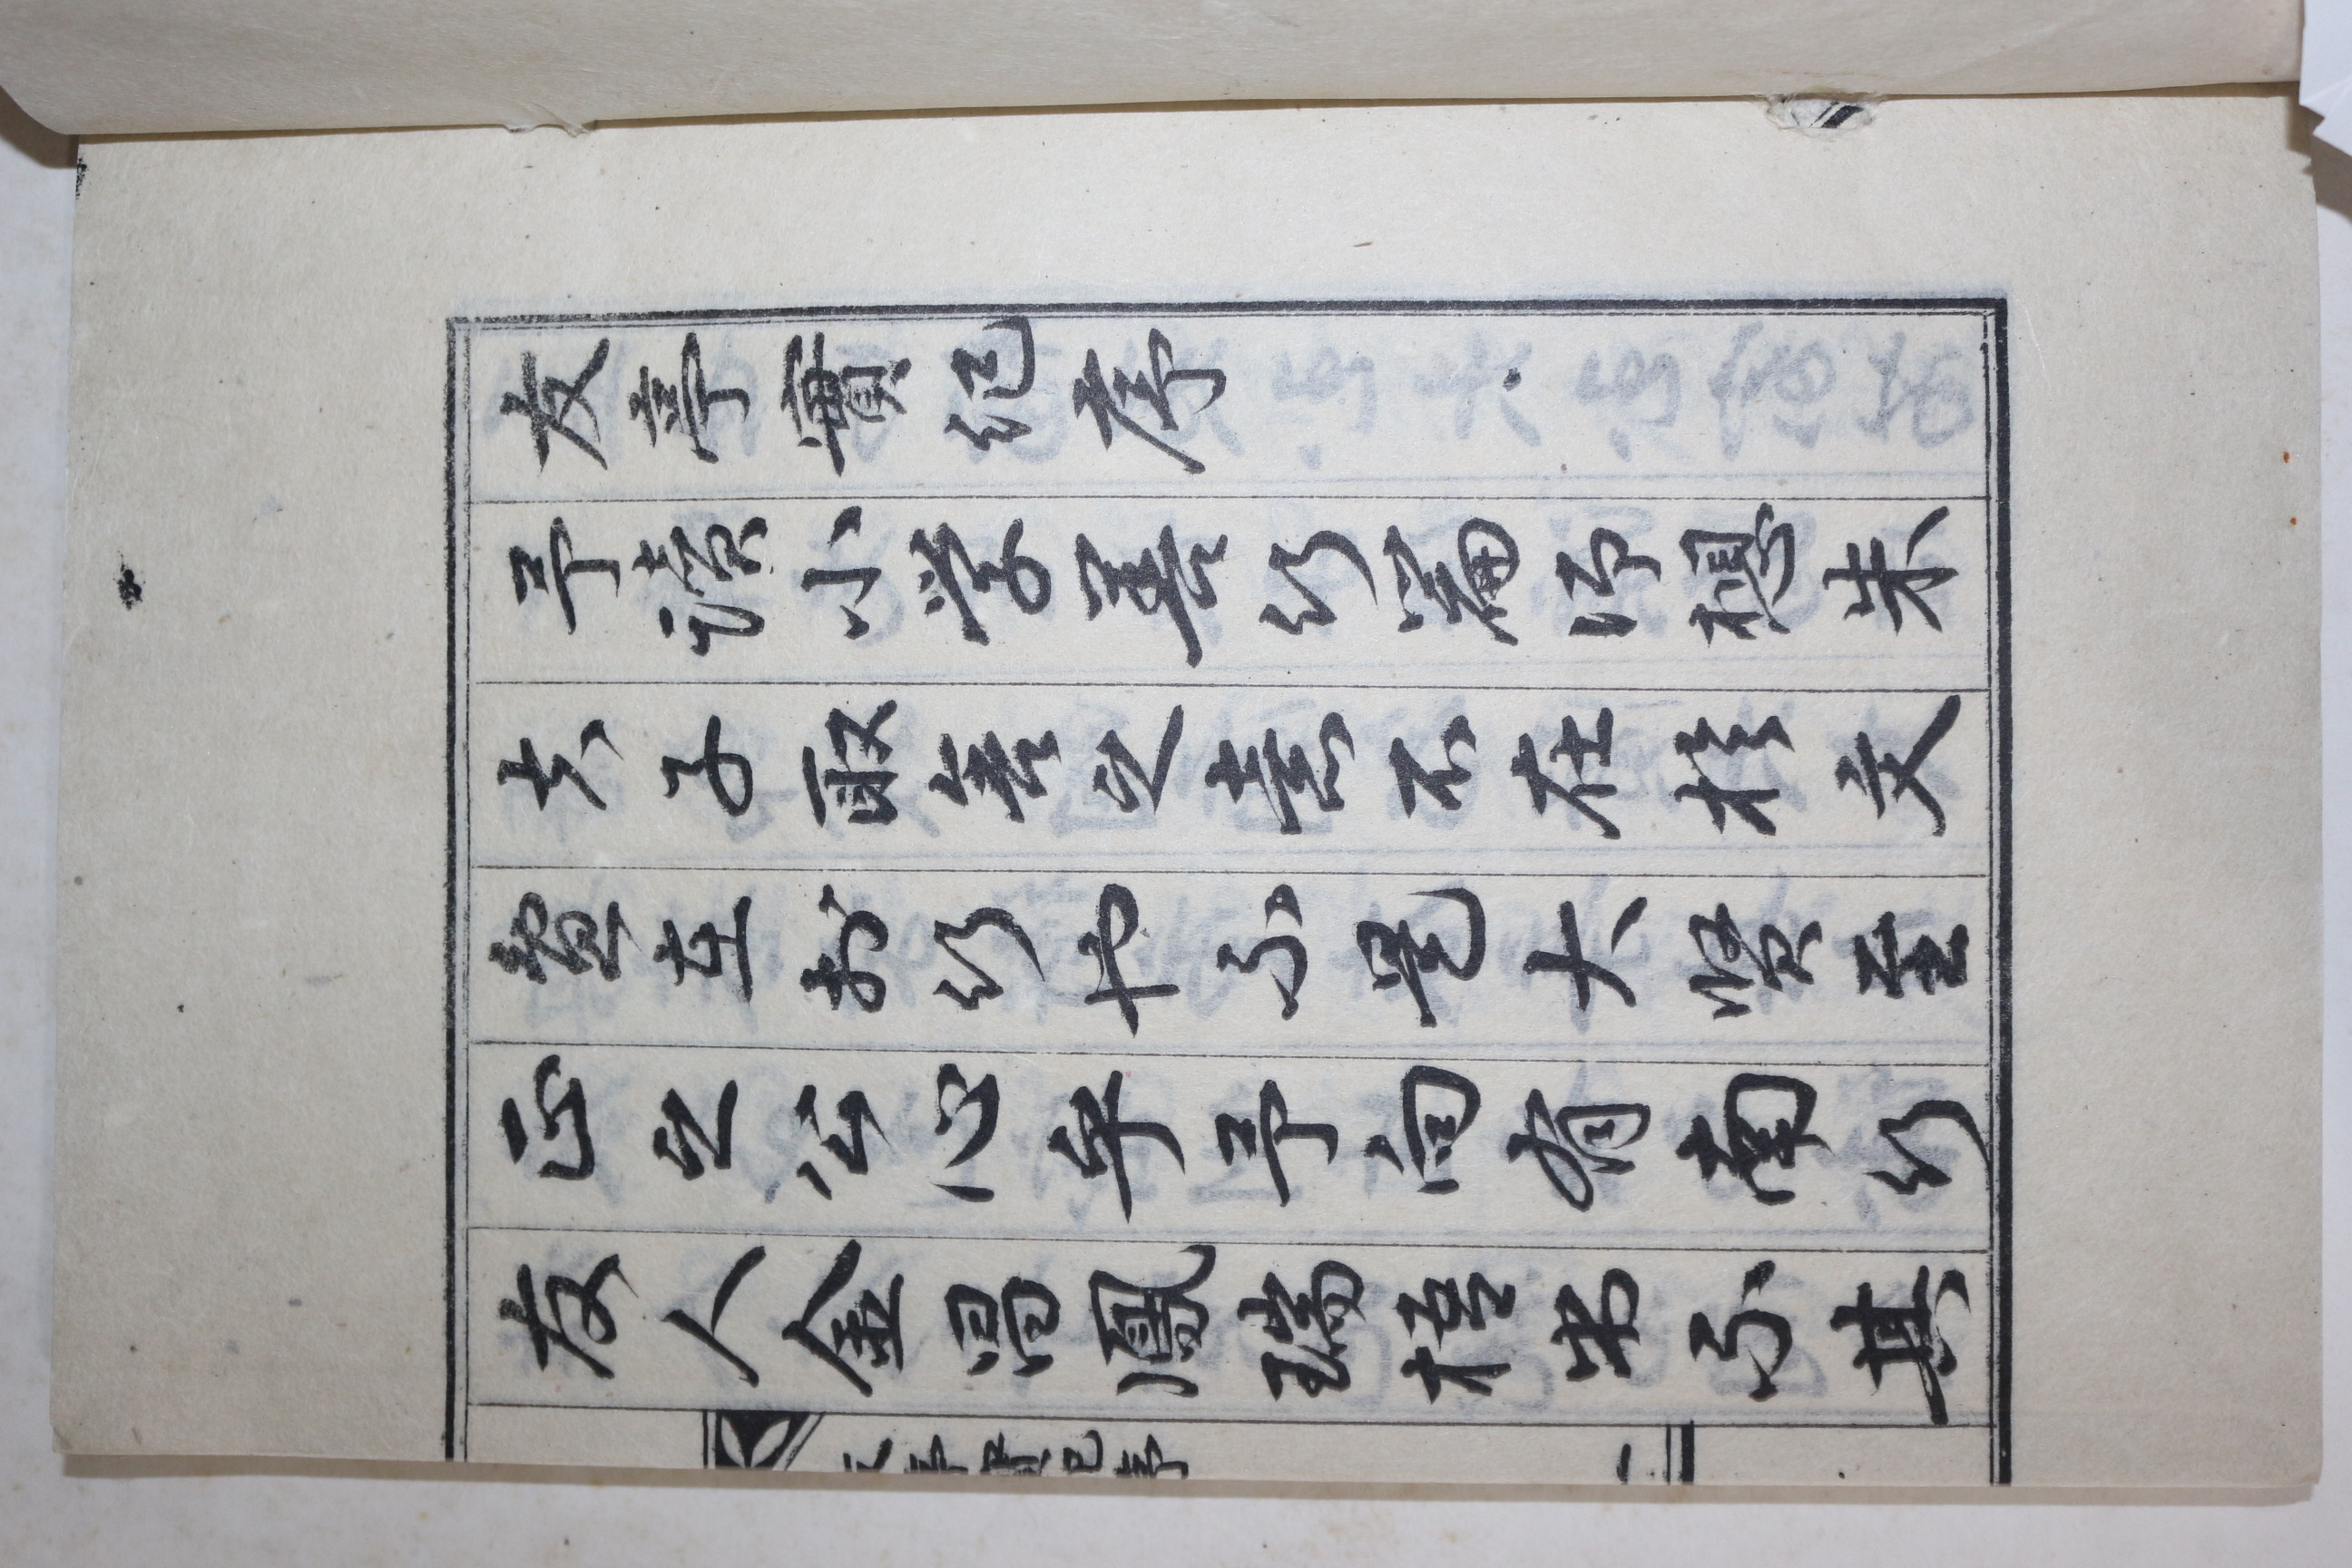 友亭實紀序
予讀小学善行篇仰想朱
夫子取舍之意不在於文
在於行也亦是大賢至
正之公心乎予向有南行
友人金昌鳳瑞梧甫亦其
友亭實紀序
一